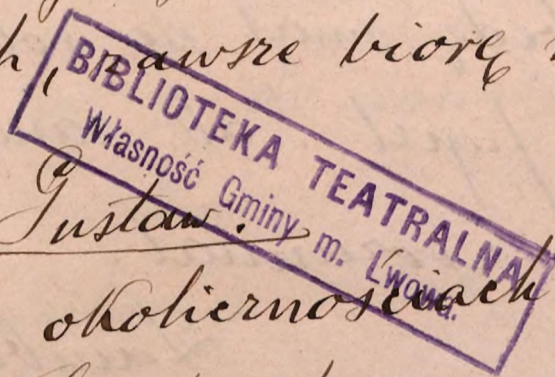 , zawsze biorę
BIBLIOTEKA TEATRALNA
Własność Gminy m. Lwowa.
Gustaw.
okolicznościach